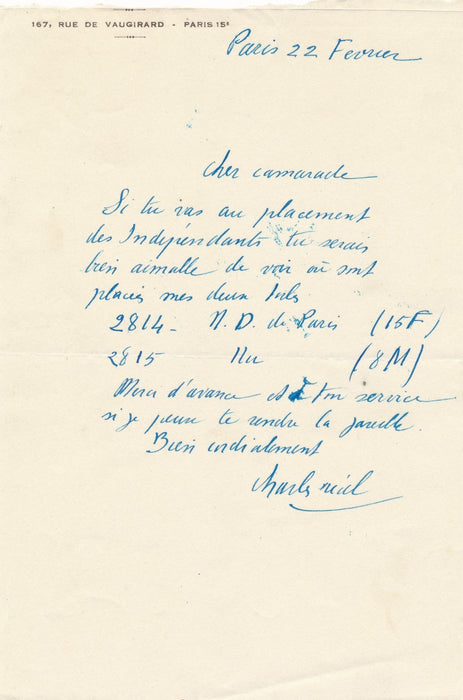 167, RUE DE VAUGIRARD - PARIS 15e
Paris 22 Fevrier
cher camarade
Si tu vas au placement
des Indépendants tu serais
bien aimable de voir où sont
placés mes deux toiles
2814 - N. D. de Paris (15F)
2815 Nu (8M)
Merci d'avance et à ton service
si je peux te rendre la pareille.
Bien cordialement
Charles